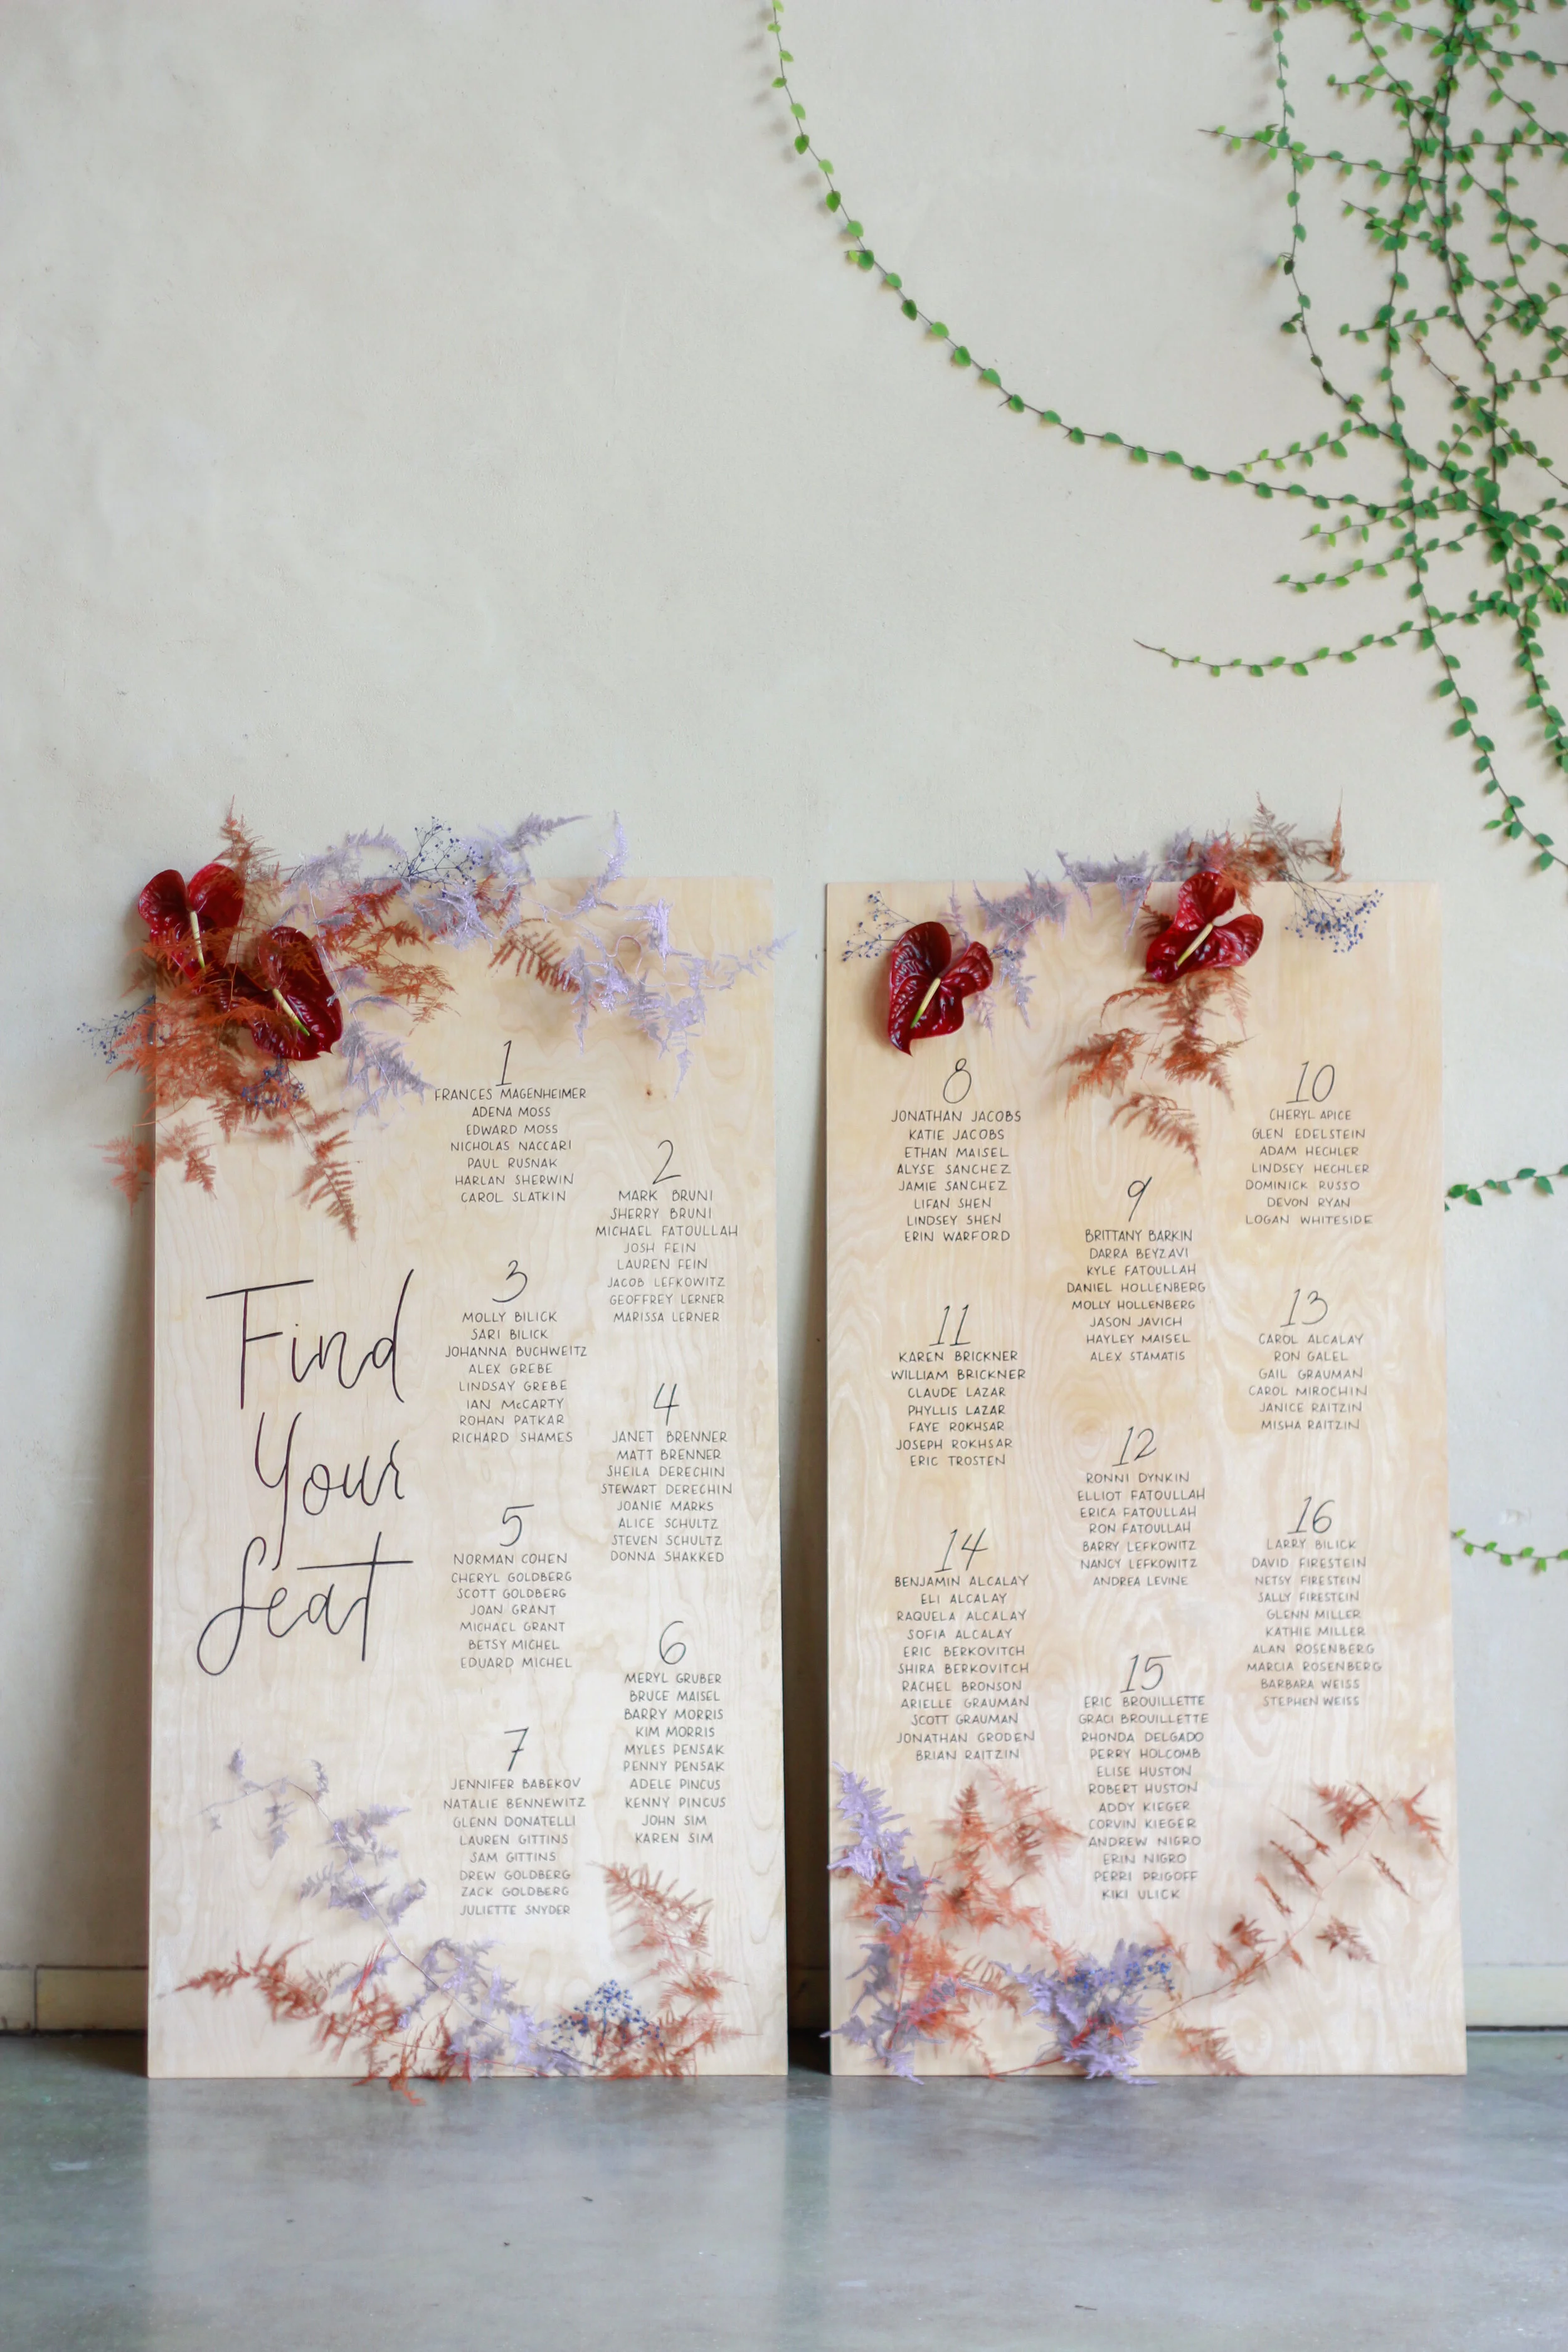 Find
Your
Seat
1
FRANCES MAGENHEIMER
ADENA MOSS
EDWARD MOSS
NICHOLAS NACCARI
PAUL RUSNAK
HARLAN SHERWIN
CAROL SLATKIN
2
MARK BRUNI
SHERRY BRUNI
MICHAEL FATOULLAH
JOSH FEIN
LAUREN FEIN
JACOB LEFKOWITZ
GEOFFREY LERNER
MARISSA LERNER
3
MOLLY BILICK
SARI BILICK
JOHANNA BUCHWEITZ
ALEX GREBE
LINDSAY GREBE
IAN McCARTY
ROHAN PATKAR
RICHARD SHAMES
4
JANET BRENNER
MATT BRENNER
SHEILA DERECHIN
STEWART DERECHIN
JOANIE MARKS
ALICE SCHULTZ
STEVEN SCHULTZ
DONNA SHAKKED
5
NORMAN COHEN
CHERYL GOLDBERG
SCOTT GOLDBERG
JOAN GRANT
MICHAEL GRANT
BETSY MICHEL
EDUARD MICHEL
6
MERYL GRUBER
BRUCE MAISEL
BARRY MORRIS
KIM MORRIS
MYLES PENSAK
PENNY PENSAK
ADELE PINCUS
KENNY PINCUS
JOHN SIM
KAREN SIM
7
JENNIFER BABEKOV
NATALIE BENNEWITZ
GLENN DONATELLI
LAUREN GITTINS
SAM GITTINS
DREW GOLDBERG
ZACK GOLDBERG
JULIETTE SNYDER
8
JONATHAN JACOBS
KATIE JACOBS
ETHAN MAISEL
ALYSE SANCHEZ
JAMIE SANCHEZ
LIFAN SHEN
LINDSEY SHEN
ERIN WARFORD
9
BRITTANY BARKIN
DARRA BEYZAVI
KYLE FATOULLAH
DANIEL HOLLENBERG
MOLLY HOLLENBERG
JASON JAVICH
HAYLEY MAISEL
ALEX STAMATIS
10
CHERYL APICE
GLEN EDELSTEIN
ADAM HECHLER
LINDSEY HECHLER
DOMINICK RUSSO
DEVON RYAN
LOGAN WHITESIDE
11
KAREN BRICKNER
WILLIAM BRICKNER
CLAUDE LAZAR
PHYLLIS LAZAR
FAYE ROKHSAR
JOSEPH ROKHSAR
ERIC TROSTEN
12
RONNI DYNKIN
ELLIOT FATOULLAH
ERICA FATOULLAH
RON FATOULLAH
BARRY LEFKOWITZ
NANCY LEFKOWITZ
ANDREA LEVINE
13
CAROL ALCALAY
RON GALEL
GAIL GRAUMAN
CAROL MIROCHIN
JANICE RAITZIN
MISHA RAITZIN
14
BENJAMIN ALCALAY
ELI ALCALAY
RAQUELA ALCALAY
SOFIA ALCALAY
ERIC BERKOVITCH
SHIRA BERKOVITCH
RACHEL BRONSON
ARIELLE GRAUMAN
SCOTT GRAUMAN
JONATHAN GRODEN
BRIAN RAITZIN
15
ERIC BROUILLETTE
GRACI BROUILLETTE
RHONDA DELGADO
PERRY HOLCOMB
ELISE HUSTON
ROBERT HUSTON
ADDY KIEGER
CORVIN KIEGER
ANDREW NIGRO
ERIN NIGRO
PERRI PRIGOFF
KIKI ULICK
16
LARRY BILICK
DAVID FIRESTEIN
NETSY FIRESTEIN
SALLY FIRESTEIN
GLENN MILLER
KATHIE MILLER
ALAN ROSENBERG
MARCIA ROSENBERG
BARBARA WEISS
STEPHEN WEISS